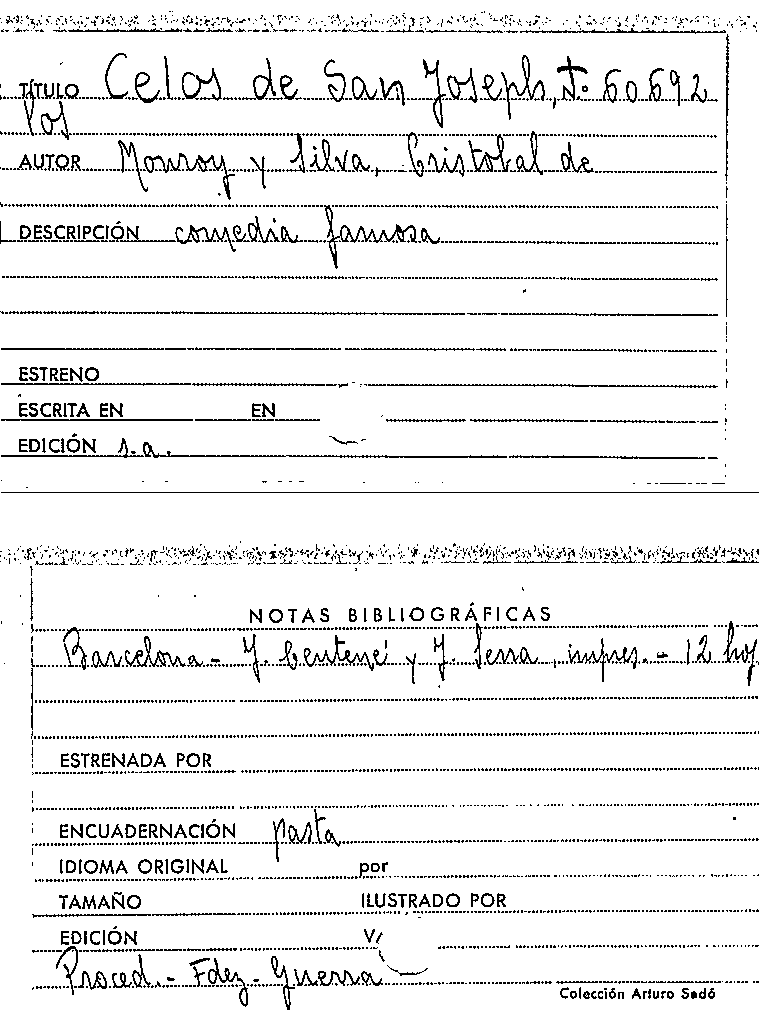 TÍTULO Celos de San Joseph, T. 60692
Los
AUTOR Monroy y Silva, Cristobal de
DESCRIPCIÓN comedia famosa
ESTRENO
ESCRITA EN EN
EDICIÓN s.a.
NOTAS BIBLIOGRÁFICAS
Barcelona - J. Centené y J. Serra, impres. - 12 hoj
ESTRENADA POR
ENCUADERNACIÓN pasta
IDIOMA ORIGINAL por
TAMAÑO ILUSTRADO POR
EDICIÓN V/
Proced. - Fdez - Guerra
Colección Arturo Sedó